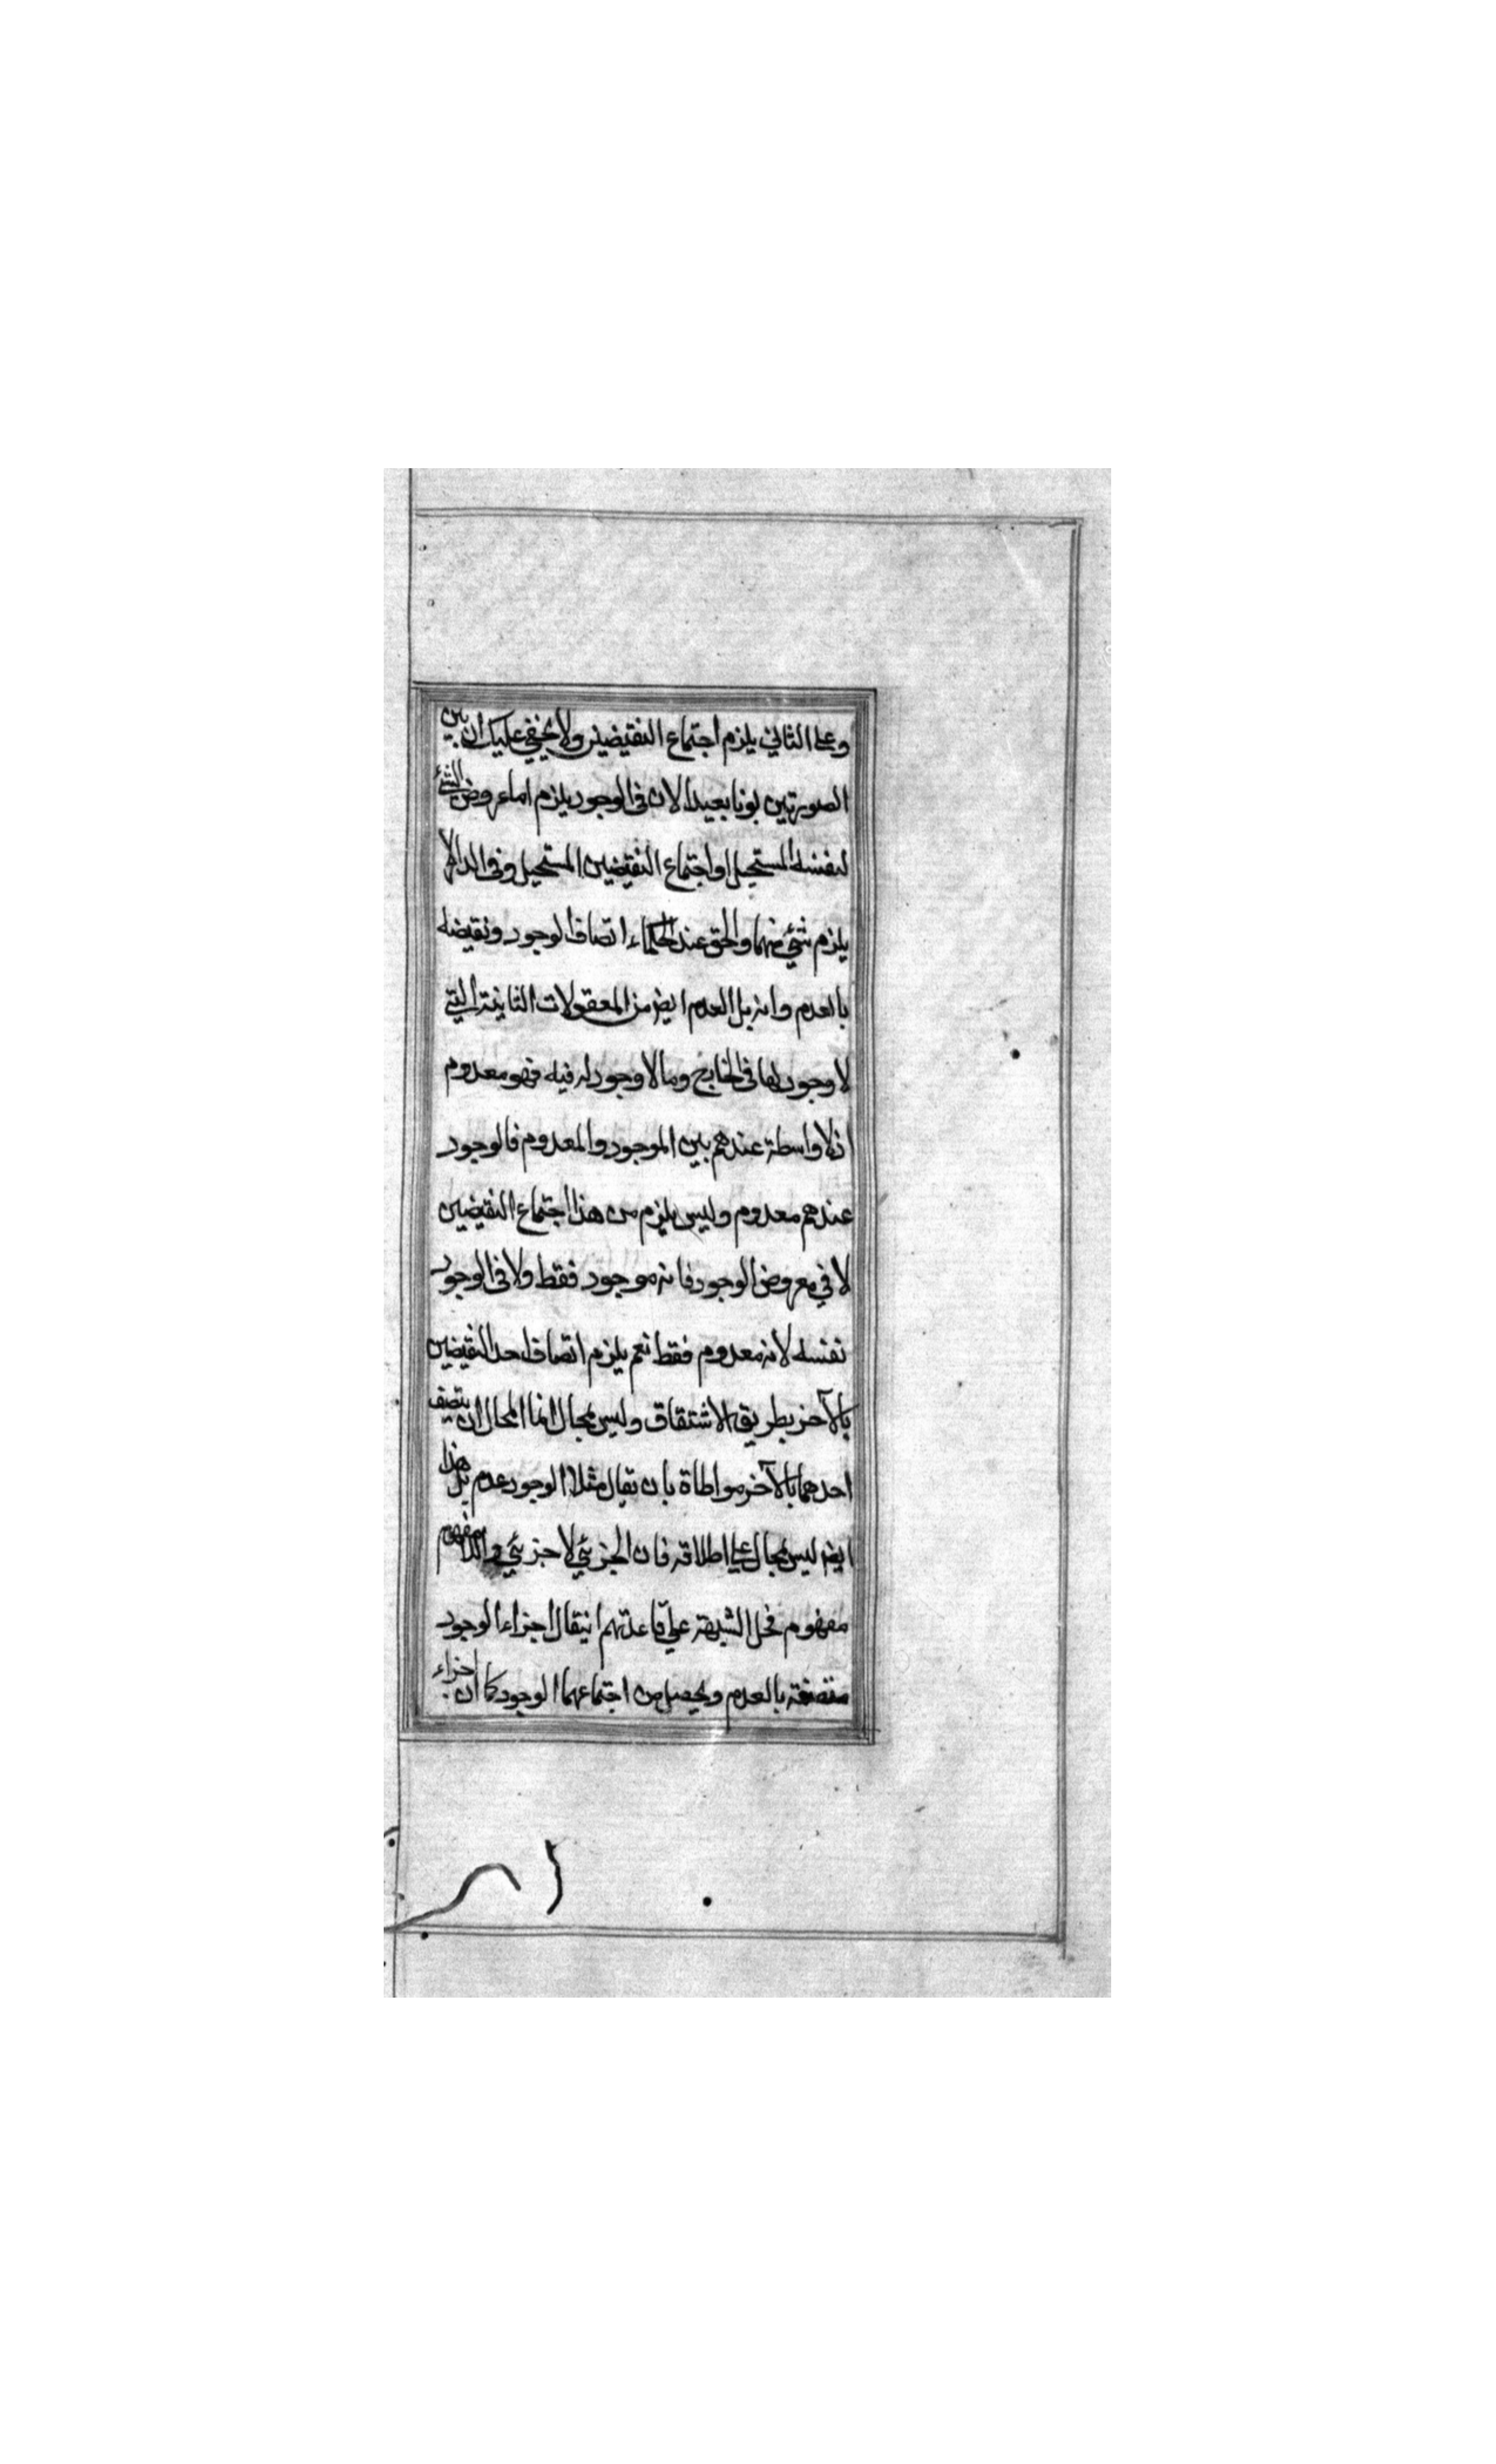 وعلى الثاني يلزم اجتماع النقيضين ولا يخفى عليك ان بين
الصورتين بونا بعيدا لان في الوجود يلزم اما عروض الشئ
لنفسه المستحيل او اجتماع النقيضين المستحيل وفي الدار لا
يلزم شئ منهما والحق عند الحكماء اتصاف الوجود ونقيضه
بالعدم وانه بل العدم ايض من المعقولات الثانية التي
لا وجود لها في الخارج وما لا وجود له فيه فهو معدوم
اذ لا واسطة عندهم بين الموجود والمعدوم فالوجود
عندهم معدوم وليس يلزم من هذا اجتماع النقيضين
لا في معروض الوجود فانه موجود فقط ولا في الوجود
نفسه لانه معدوم فقط نعم يلزم اتصاف احد النقيضين
بالآخر بطريق الاشتقاق وليس بمحال انما المحال ان يتصف
احدهما بالآخر مواطاة بان يقال مثلا الوجود عدم بل هذا
ايض ليس بمحال على اطلاقه فان الجزئي لا جزئي واللامفهوم
مفهوم فحل الشبهة على قاعدتهم ان يقال اجزاء الوجود
متصفة بالعدم ويحصل من اجتماعهما الوجود كما ان اجزاء